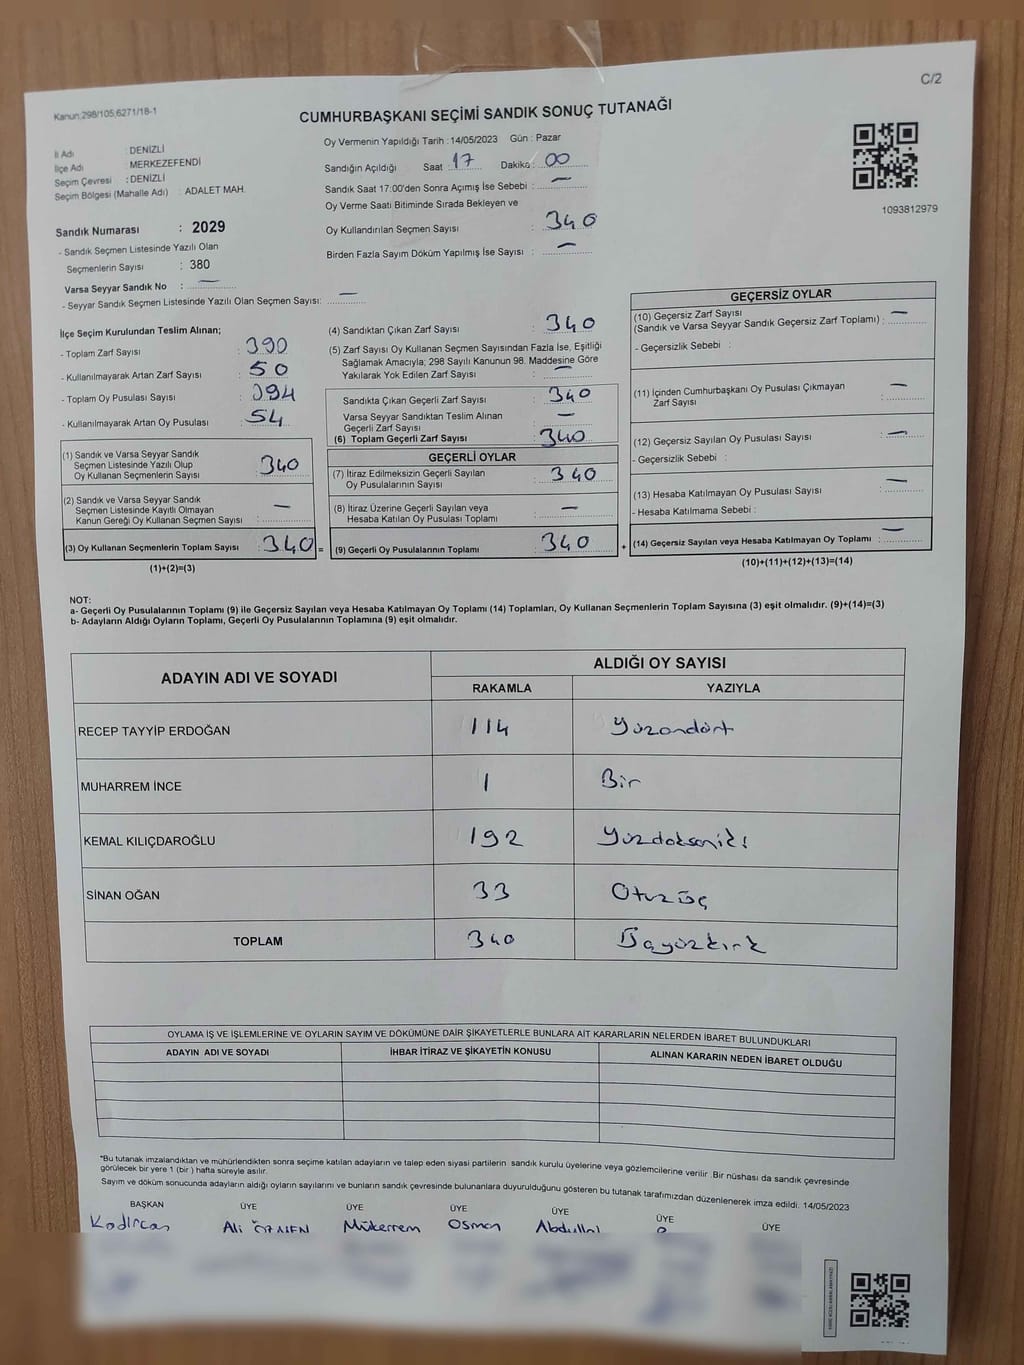 C/2
Kanun:298/105;6271/18-1
CUMHURBAŞKANI SEÇİMİ SANDIK SONUÇ TUTANAĞI
İl Adı : DENİZLİ
İlçe Adı : MERKEZEFENDİ
Seçim Çevresi : DENİZLİ
Seçim Bölgesi (Mahalle Adı) : ADALET MAH.
Sandık Numarası : 2029
- Sandık Seçmen Listesinde Yazılı Olan
Seçmenlerin Sayısı : 380
Varsa Seyyar Sandık No : —
- Seyyar Sandık Seçmen Listesinde Yazılı Olan Seçmen Sayısı: —
Oy Vermenin Yapıldığı Tarih : 14/05/2023 Gün : Pazar
Sandığın Açıldığı Saat 17 Dakika : 00
Sandık Saat 17:00'den Sonra Açımış İse Sebebi : —
Oy Verme Saati Bitiminde Sırada Bekleyen ve
Oy Kullandırılan Seçmen Sayısı : 340
Birden Fazla Sayım Döküm Yapılmış İse Sayısı : —
1093812979
İlçe Seçim Kurulundan Teslim Alınan;
- Toplam Zarf Sayısı : 390
- Kullanılmayarak Artan Zarf Sayısı : 50
- Toplam Oy Pusulası Sayısı : 394
- Kullanılmayarak Artan Oy Pusulası : 54
(1) Sandık ve Varsa Seyyar Sandık
Seçmen Listesinde Yazılı Olup
Oy Kullanan Seçmenlerin Sayısı : 340
(2) Sandık ve Varsa Seyyar Sandık
Seçmen Listesinde Kayıtlı Olmayan
Kanun Gereği Oy Kullanan Seçmen Sayısı : —
(3) Oy Kullanan Seçmenlerin Toplam Sayısı : 340 =
(1)+(2)=(3)
(4) Sandıktan Çıkan Zarf Sayısı : 340
(5) Zarf Sayısı Oy Kullanan Seçmen Sayısından Fazla İse, Eşitliği
Sağlamak Amacıyla; 298 Sayılı Kanunun 98. Maddesine Göre
Yakılarak Yok Edilen Zarf Sayısı : —
Sandıkta Çıkan Geçerli Zarf Sayısı : 340
Varsa Seyyar Sandıktan Teslim Alınan
Geçerli Zarf Sayısı : —
(6) Toplam Geçerli Zarf Sayısı : 340
GEÇERLİ OYLAR
(7) İtiraz Edilmeksizin Geçerli Sayılan
Oy Pusulalarının Sayısı : 340
(8) İtiraz Üzerine Geçerli Sayılan veya
Hesaba Katılan Oy Pusulası Toplamı : —
(9) Geçerli Oy Pusulalarının Toplamı : 340 +
GEÇERSİZ OYLAR
(10) Geçersiz Zarf Sayısı
(Sandık ve Varsa Seyyar Sandık Geçersiz Zarf Toplamı) : —
- Geçersizlik Sebebi :
(11) İçinden Cumhurbaşkanı Oy Pusulası Çıkmayan
Zarf Sayısı : —
(12) Geçersiz Sayılan Oy Pusulası Sayısı : —
- Geçersizlik Sebebi :
(13) Hesaba Katılmayan Oy Pusulası Sayısı : —
- Hesaba Katılmama Sebebi :
(14) Geçersiz Sayılan veya Hesaba Katılmayan Oy Toplamı : —
(10)+(11)+(12)+(13)=(14)
NOT:
a- Geçerli Oy Pusulalarının Toplamı (9) ile Geçersiz Sayılan veya Hesaba Katılmayan Oy Toplamı (14) Toplamları, Oy Kullanan Seçmenlerin Toplam Sayısına (3) eşit olmalıdır. (9)+(14)=(3)
b- Adayların Aldığı Oyların Toplamı, Geçerli Oy Pusulalarının Toplamına (9) eşit olmalıdır.
ADAYIN ADI VE SOYADI
ALDIĞI OY SAYISI
RAKAMLA YAZIYLA
RECEP TAYYİP ERDOĞAN 114 Yüzondört
MUHARREM İNCE 1 Bir
KEMAL KILIÇDAROĞLU 192 Yüzdoksaniki
SİNAN OĞAN 33 Otuzüç
TOPLAM 340 Üçyüzkırk
OYLAMA İŞ VE İŞLEMLERİNE VE OYLARIN SAYIM VE DÖKÜMÜNE DAİR ŞİKAYETLERLE BUNLARA AİT KARARLARIN NELERDEN İBARET BULUNDUKLARI
ADAYIN ADI VE SOYADI İHBAR İTİRAZ VE ŞİKAYETİN KONUSU ALINAN KARARIN NEDEN İBARET OLDUĞU
*Bu tutanak imzalandıktan ve mühürlendikten sonra seçime katılan adayların ve talep eden siyasi partilerin sandık kurulu üyelerine veya gözlemcilerine verilir. Bir nüshası da sandık çevresinde
görülecek bir yere 1 (bir) hafta süreyle asılır.
Sayım ve döküm sonucunda adayların aldığı oyların sayılarını ve bunların sandık çevresinde bulunanlara duyurulduğunu gösteren bu tutanak tarafımızdan düzenlenerek imza edildi. 14/05/2023
BAŞKAN ÜYE ÜYE ÜYE ÜYE ÜYE ÜYE
Kadircan Ali ÖZMEN Mükerrem Osman